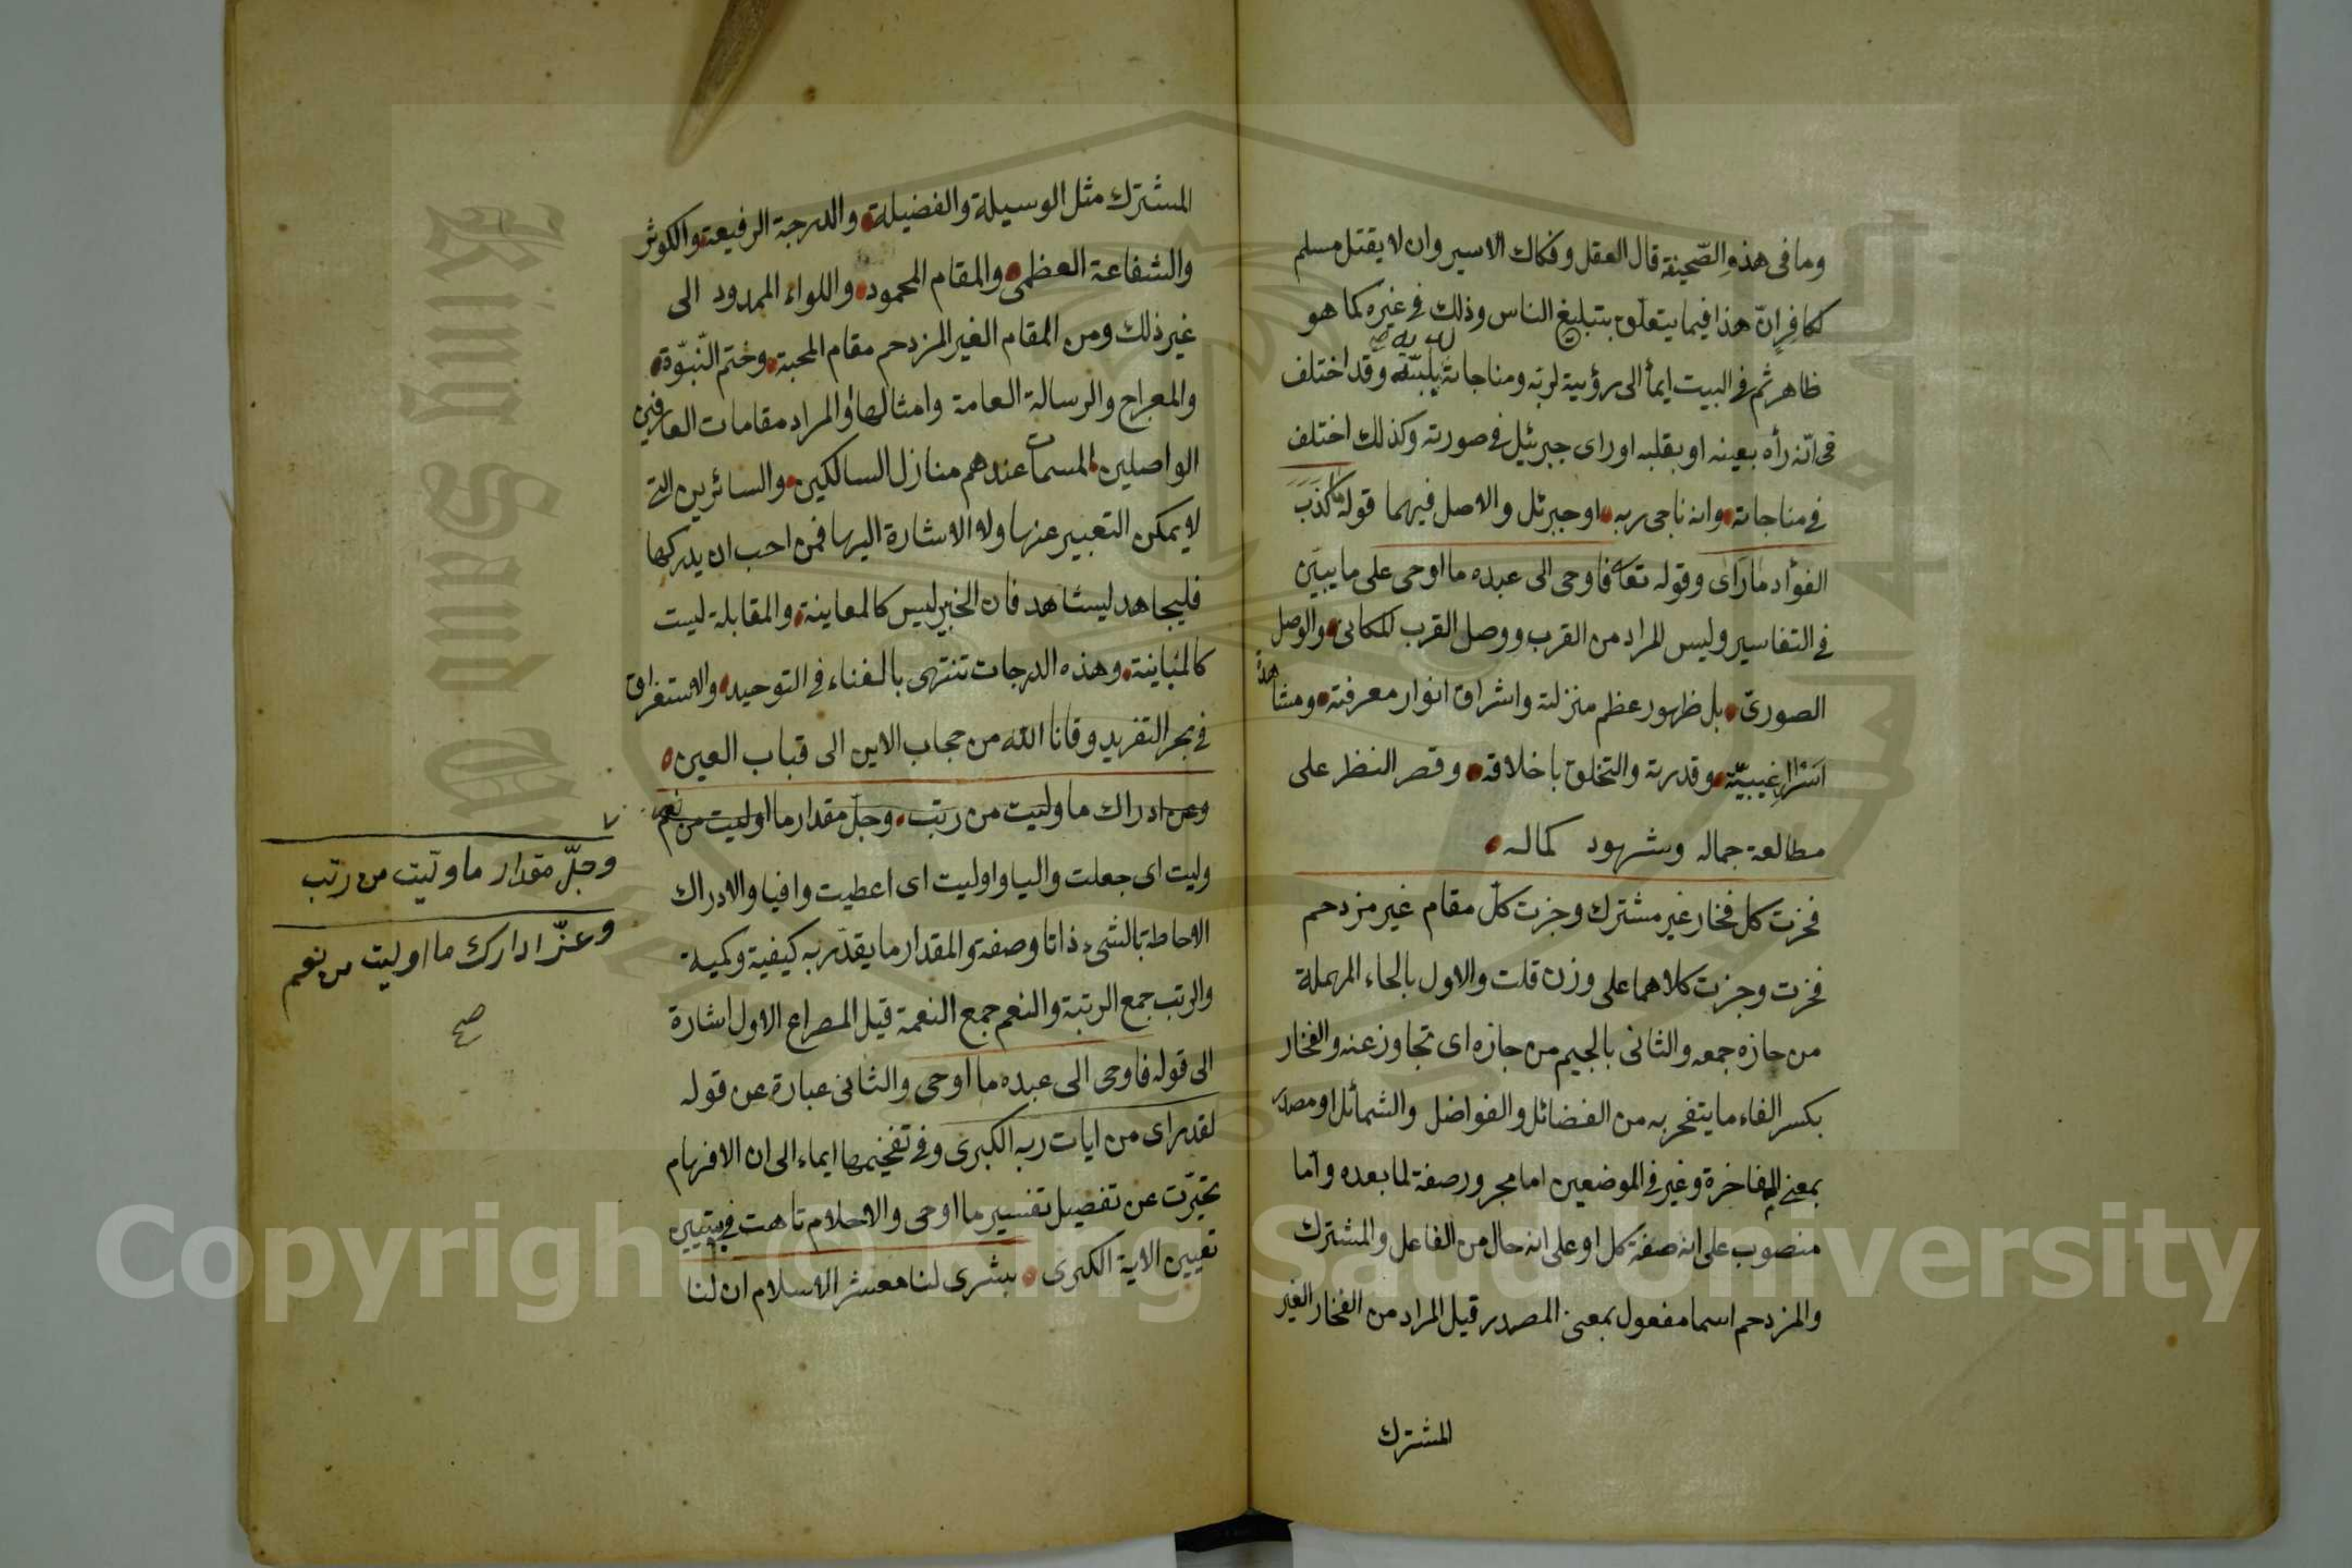 وما فى هذه الصّحيفة قال العقل وفكاك الاسير وان لا يقتل مسلم
بكافر انّ هذا فيما يتعلّق بتبليغ الناس وذلك فى غيره كما هو
ظاهر ثم فى البيت ايمأ الى رؤيية لربّه ومناجاتة وقد اختلف
فى انّه رأه بعينه او بقلبه او راى جبرئيل فى صورته وكذلك اختلف
فى مناجاته وانه ناجى ربه او جبرئل والاصل فيهما قوله ما كذب
الفؤاد ما رَاَى وقوله تعا فاوحى الى عبده ما اوحى على ما يبيّن
فى التفاسير وليس المراد من القرب ووصل القرب المكانى والوصل
الصورىّ بل ظهور عظم منزلته واشراق انوار معرفته ومشاهدة
اسرار غيبيّة وقدرته والتخلق باخلاقه وقصر النظر على
مطالعة جماله وشهود كماله
فحزت كل فخار غير مشترك وجزت كلّ مقام غير مزدحم
فحزت وجزت كلاهما على وزن قلت والاول بالحاء المهملة
من حازه جمعه والثانى بالجيم من جازه اى تجاوز عنه والفخار
بكسر الفاء ما يتفخر به من الفضائل والفواضل والشمائل او مصدر
بمعنى المفاخرة وغير فى الموضعين اما مجرور صفة لما بعده واما
منصوب على انه صفة كل او على انه حال من الفاعل والمشترك
والمزدحم اسما مفعول بمعنى المصدر قيل المراد من الفخار الغير
المشترك
المشترك مثل الوسيلة والفضيلة والدرجة الرفيعة والكوثر
والشفاعة العظمى والمقام المحمود واللواء الممدود الى
غير ذلك ومن المقام الغير المزدحم مقام المحبة وختم النّبوّة
والمعراج والرسالة العامة وامثالها او المراد مقامات العارفين
الواصلين المسمات عندهم منازل السالكين والسائرين التى
لا يمكن التعبير عنها ولا الاشارة اليها فمن احب ان يدركها
فليجاهد ليشاهد فان الخبر ليس كالمعاينة والمقابلة ليست
كالمباينة وهذه الدرجات تنتهى بالفناء فى التوحيد والاستغراق
فى بحر التفريد وقانا الله من حجاب الاين الى قباب العين
وعن ادراك ما وليت من رتب وجلّ مقدار ما اوليت من نعم
وليت اى جعلت واليا واوليت اى اعطيت وافيا والادراك
الاحاطة بالشىء ذاتا وصفة والمقدار ما يقدّر به كيفية وكمية
والرتب جمع الرتبة والنعم جمع النعمة قيل المصراع الاول اشارة
الى قوله فاوحى الى عبده ما اوحى والثانى عبارة عن قوله
لقد راى من ايات ربه الكبرى وفى تفخيمها ايماء الى ان الافهام
تحيّرت عن تفصيل تفسير ما اوحى والاحلام تاهت فى تبيين
تعيين الاية الكبرى بشرى لنا معشر الاسلام ان لنا
وجلّ مقدار ما وليت من رتب
وعزّ ادارك ما اوليت من نعم
صح
Copyright © King Saud University
King Saud University